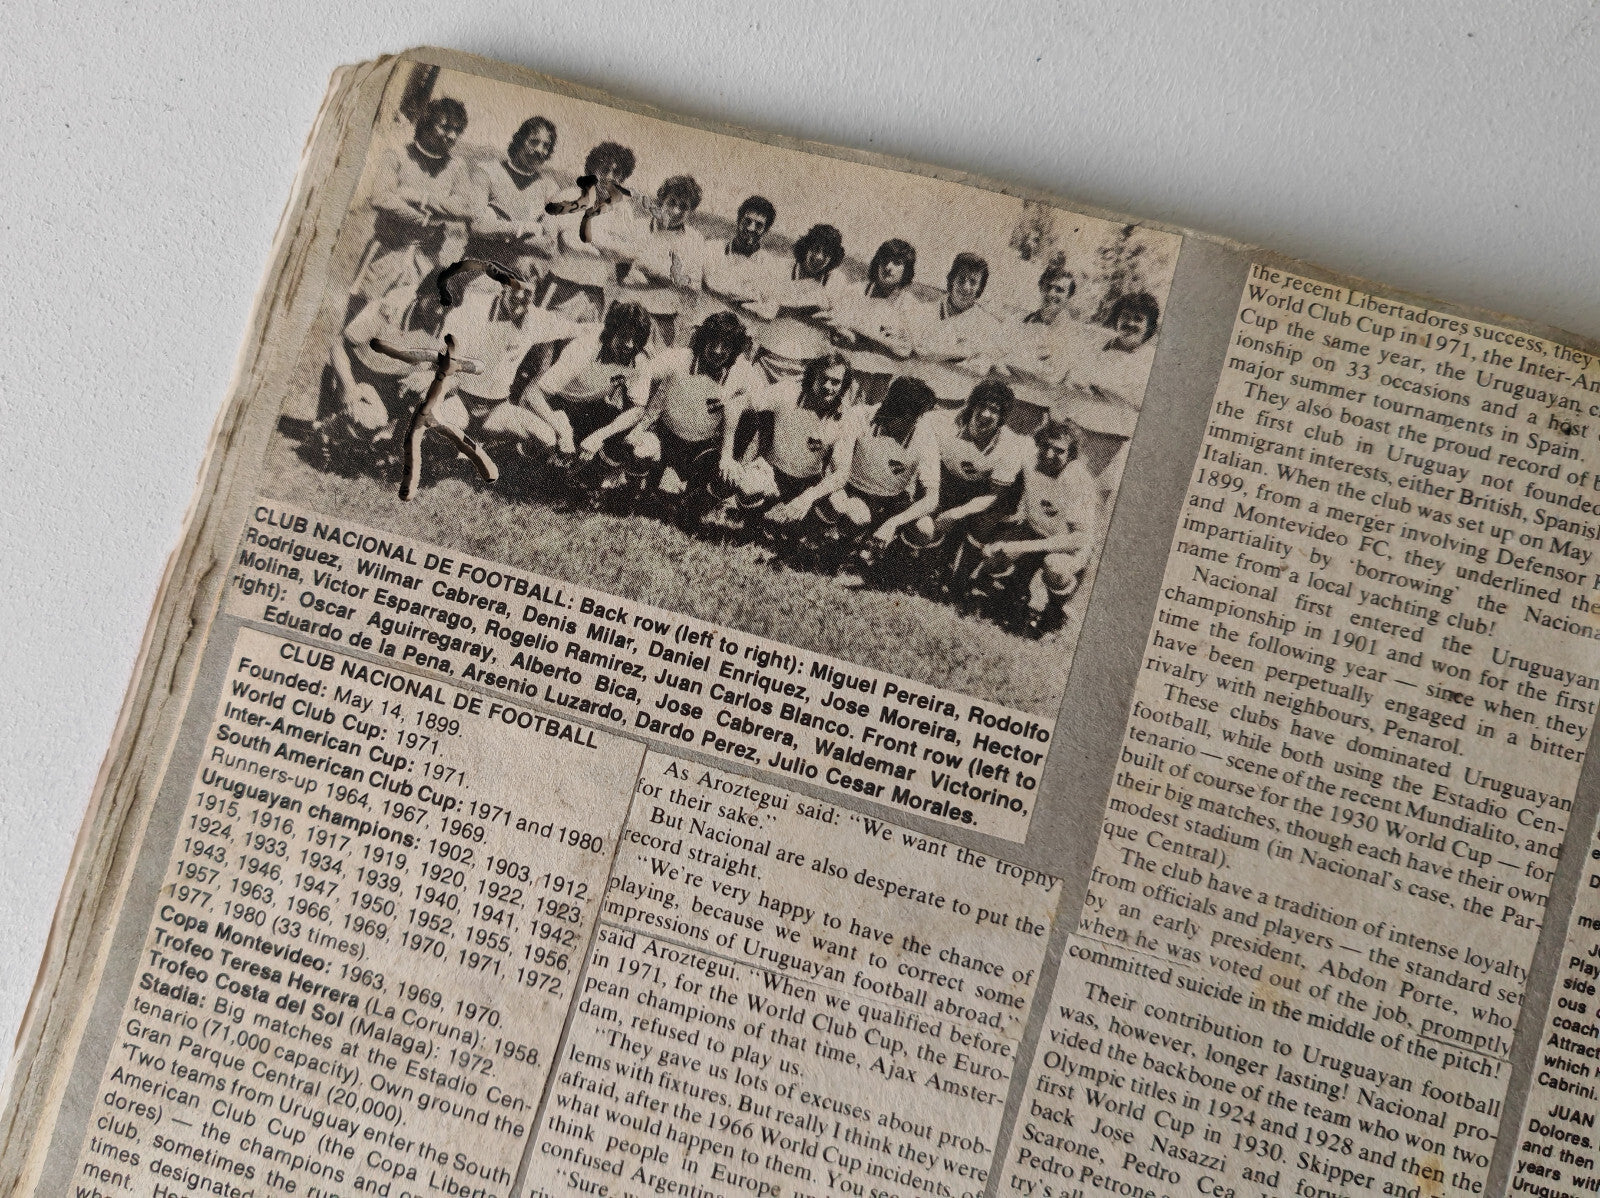 CLUB NACIONAL DE FOOTBALL: Back row (left to right): Miguel Pereira, Rodolfo
Rodriguez, Wilmar Cabrera, Denis Milar, Daniel Enriquez, Jose Moreira, Hector
Molina, Victor Esparrago, Rogelio Ramirez, Juan Carlos Blanco. Front row (left to
right): Oscar Aguirregaray, Alberto Bica, Jose Cabrera, Waldemar Victorino,
Eduardo de la Pena, Arsenio Luzardo, Dardo Perez, Julio Cesar Morales.
CLUB NACIONAL DE FOOTBALL
Founded: May 14, 1899.
World Club Cup: 1971.
Inter-American Cup: 1971.
South American Club Cup: 1971 and 1980.
Runners-up 1964, 1967, 1969.
Uruguayan champions: 1902, 1903, 1912,
1915, 1916, 1917, 1919, 1920, 1922, 1923,
1924, 1933, 1934, 1939, 1940, 1941, 1942,
1943, 1946, 1947, 1950, 1952, 1955, 1956,
1957, 1963, 1966, 1969, 1970, 1971, 1972,
1977, 1980 (33 times).
Copa Montevideo: 1963, 1969, 1970.
Trofeo Teresa Herrera (La Coruna): 1958.
Trofeo Costa del Sol (Malaga): 1972.
Stadia: Big matches at the Estadio Cen-
tenario (71,000 capacity). Own ground the
Gran Parque Central (20,000).
*Two teams from Uruguay enter the South
American Club Cup (the Copa Liberta-
dores) — the champions and
club, sometimes the
times designated
ment.
As Aroztegui said: “We want the trophy
for their sake.”
But Nacional are also desperate to put the
record straight.
“We're very happy to have the chance of
playing, because we want to correct some
impressions of Uruguayan football abroad,”
said Aroztegui. “When we qualified before,
in 1971, for the World Club Cup, the Euro-
pean champions of that time, Ajax Amster-
dam, refused to play us.
“They gave us lots of excuses about prob-
lems with fixtures. But really I think they were
afraid, after the 1966 World Cup incidents, of
what would happen to them. You see
think people in Europe
confused
“Sure,
the recent Libertadores success, they
World Club Cup in 1971, the Inter-
Cup the same year, the Uruguayan
ionship on 33 occasions and a host
major summer tournaments in Spain.
They also boast the proud record of
the first club in Uruguay not founded
immigrant interests, either British,
Italian. When the club was set up on May
1899, from a merger involving Defensor
and Montevideo FC, they underlined
impartiality by ‘borrowing’ the
name from a local yachting club!
Nacional first entered the Uruguayan
championship in 1901 and won for the first
time the following year — since when they
have been perpetually engaged in a bitter
rivalry with neighbours, Penarol.
These clubs have dominated Uruguayan
football, while both using the Estadio Cen-
tenario — scene of the recent Mundialito, and
built of course for the 1930 World Cup — for
their big matches, though each have their own
modest stadium (in Nacional's case, the Par-
que Central).
The club have a tradition of intense loyalty
from officials and players — the standard set
by an early president, Abdon Porte, who,
when he was voted out of the job, promptly
committed suicide in the middle of the pitch!
Their contribution to Uruguayan football
was, however, longer lasting! Nacional pro-
vided the backbone of the team who won two
Olympic titles in 1924 and 1928 and then the
first World Cup in 1930. Skipper and
back Jose Nasazzi and
Scarone, Pedro Cea,
Pedro Petrone
try's
Play
side
coach
Attract
which
Cabrini.
JUAN
Dolores.
and then
years